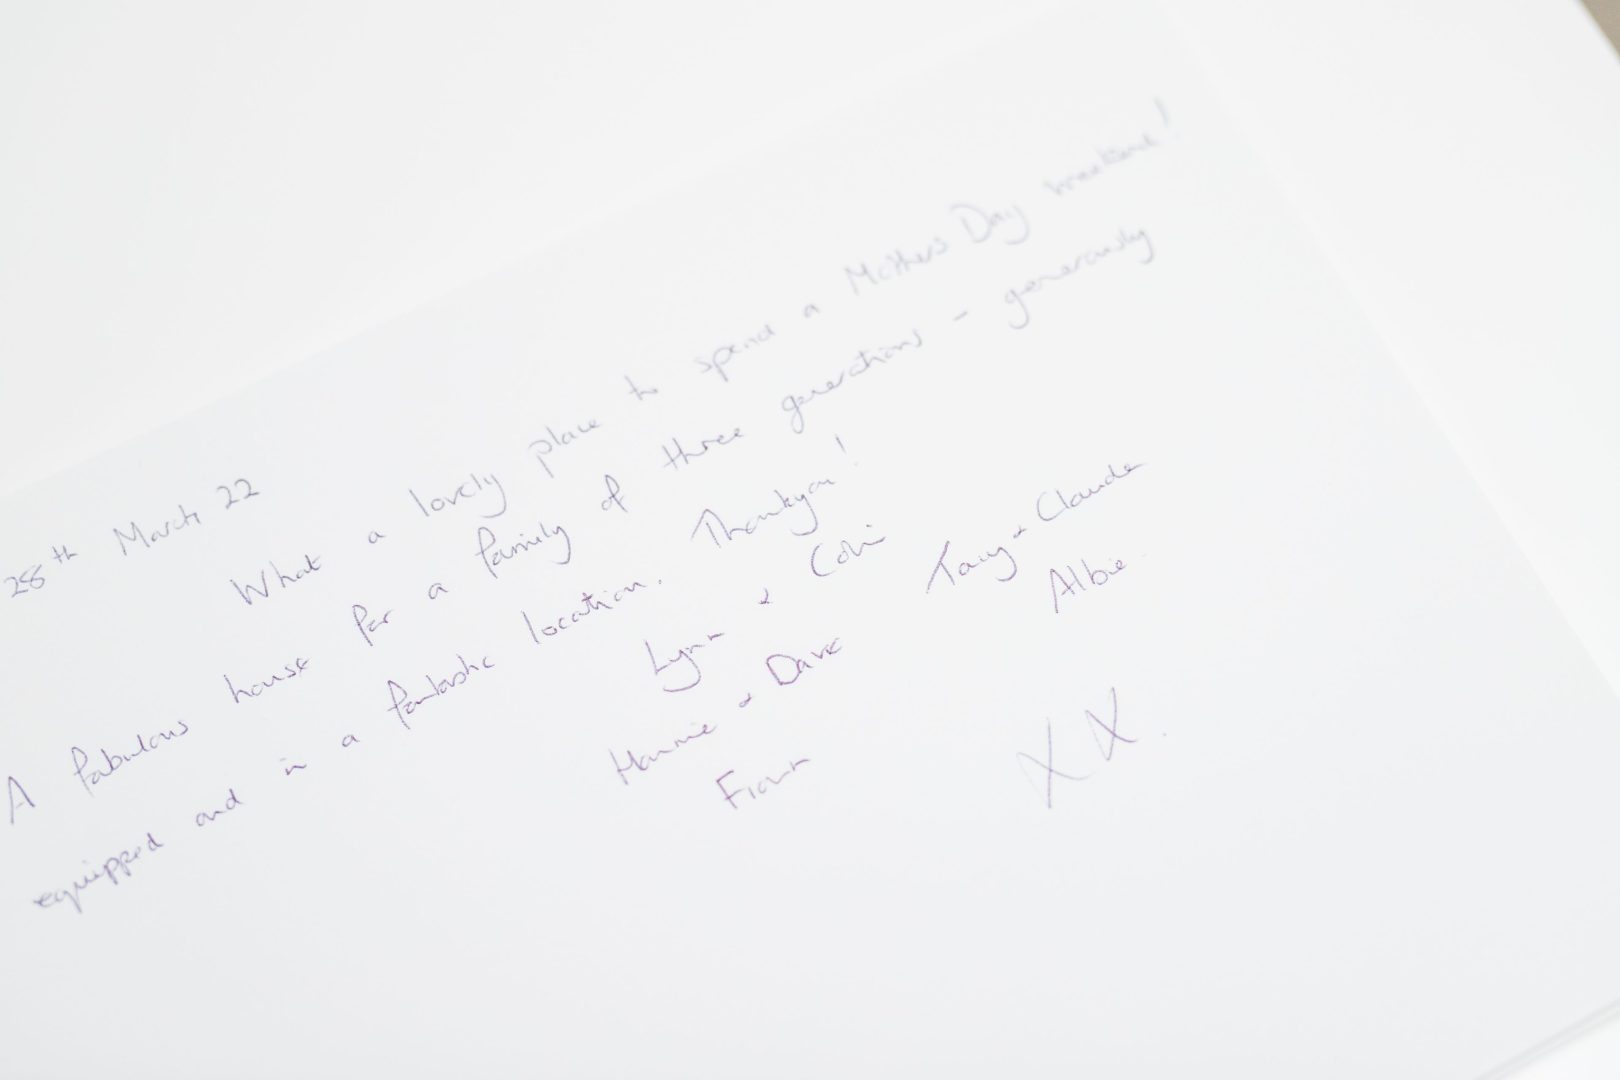 28th March 22
What a lovely place to spend a Mothers Day weekend!
A fabulous house for a family of three generations - generously
equipped and in a fantastic location. Thankyou!
Lynn & Colin
& Claude
& Dave
Albie
XX.